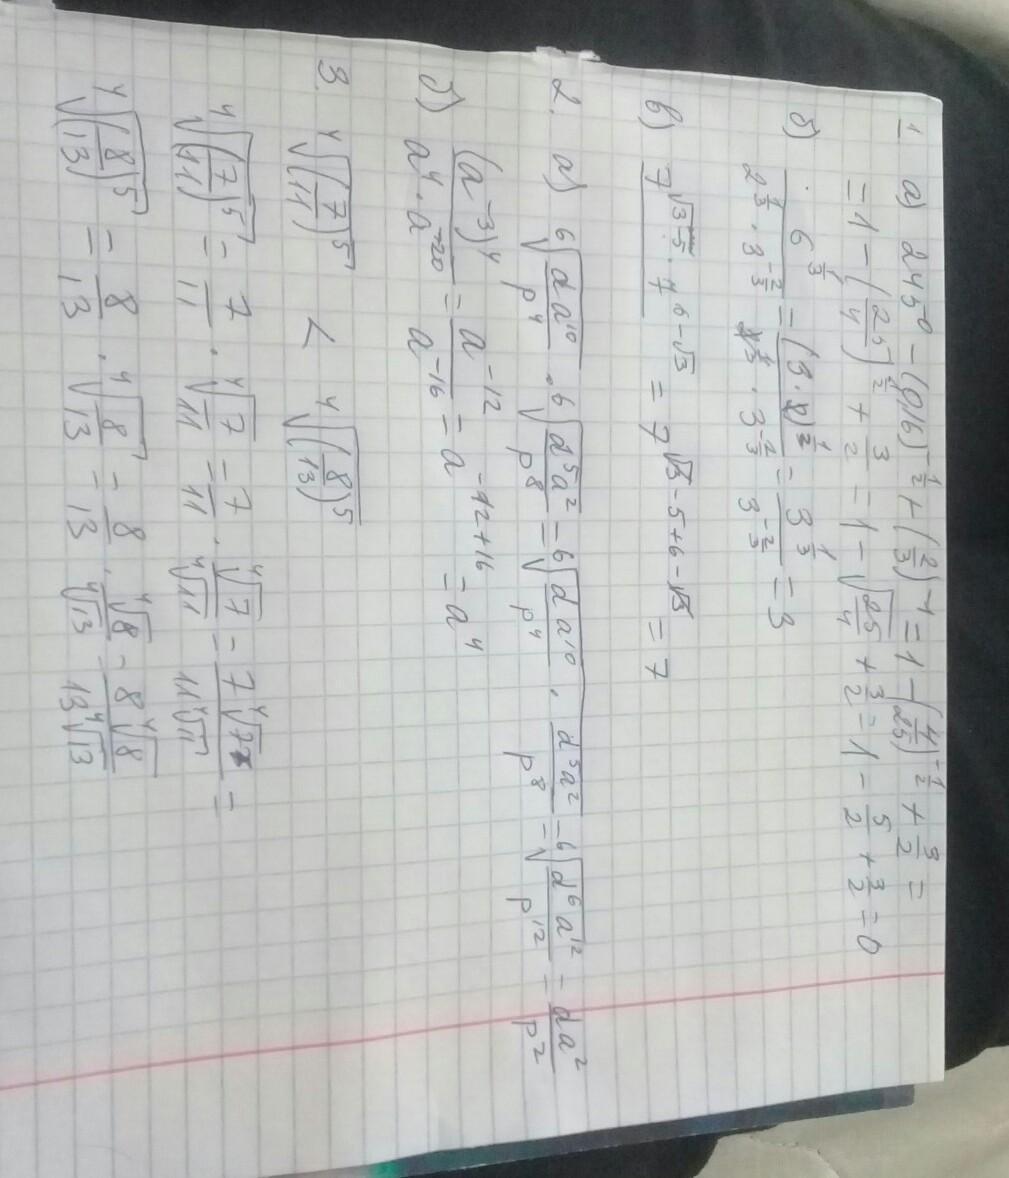 1 а) 245⁻⁰ − (0,16)^(-1/2) + (2/3)⁻¹ = 1 − (4/25)^(-1/2) + 3/2 =
= 1 − (25/4)^(1/2) + 3/2 = 1 − √(25/4) + 3/2 = 1 − 5/2 + 3/2 = 0
б) 6^(1/3) / (2^(1/3) · 3^(-2/3)) = (3·2)^(1/2) / (2^(1/3) · 3^(-2/3)) = 3^(1/3) / 3^(-2/3) = 3
в) 7^(√3−5) · 7^(6−√3) = 7^(√3−5+6−√3) = 7
2. а) ⁶√(da¹⁰/p⁴) · ⁶√(d⁵a²/p⁸) = ⁶√(da¹⁰/p⁴ · d⁵a²/p⁸) = ⁶√(d⁶a¹²/p¹²) = da²/p²
б) (a⁻³)⁴ / (a⁴ · a⁻²⁰) = a⁻¹² / a⁻¹⁶ = a⁻¹²⁺¹⁶ = a⁴
3. ⁴√((7/11)⁵) < ⁴√((8/13)⁵)
⁴√((7/11)⁵) = 7/11 · ⁴√(7/11) = 7/11 · ⁴√7/⁴√11 = 7⁴√7 / 11⁴√11 =
⁴√((8/13)⁵) = 8/13 · ⁴√(8/13) = 8/13 · ⁴√8/⁴√13 = 8⁴√8 / 13⁴√13